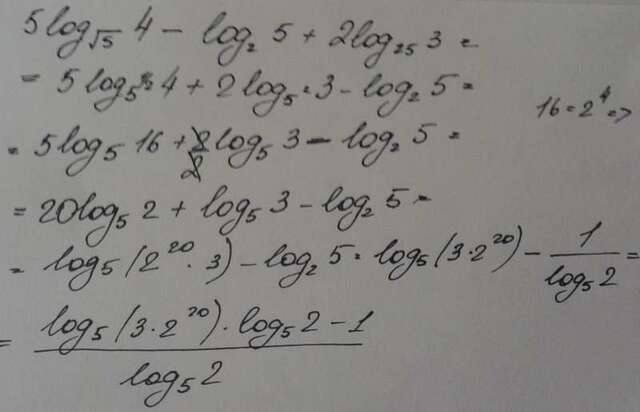 5log_√5 4 − log₂ 5 + 2log₂₅ 3 =
= 5log_5^½ 4 + 2log_5² 3 − log₂ 5 =
16 = 2⁴ =>
= 5log₅ 16 + 2/2 log₅ 3 − log₂ 5 =
= 20log₅ 2 + log₅ 3 − log₂ 5 =
= log₅(2²⁰ · 3) − log₂ 5 = log₅(3·2²⁰) − 1/log₅2 =
= (log₅(3·2²⁰) · log₅2 − 1)/log₅2